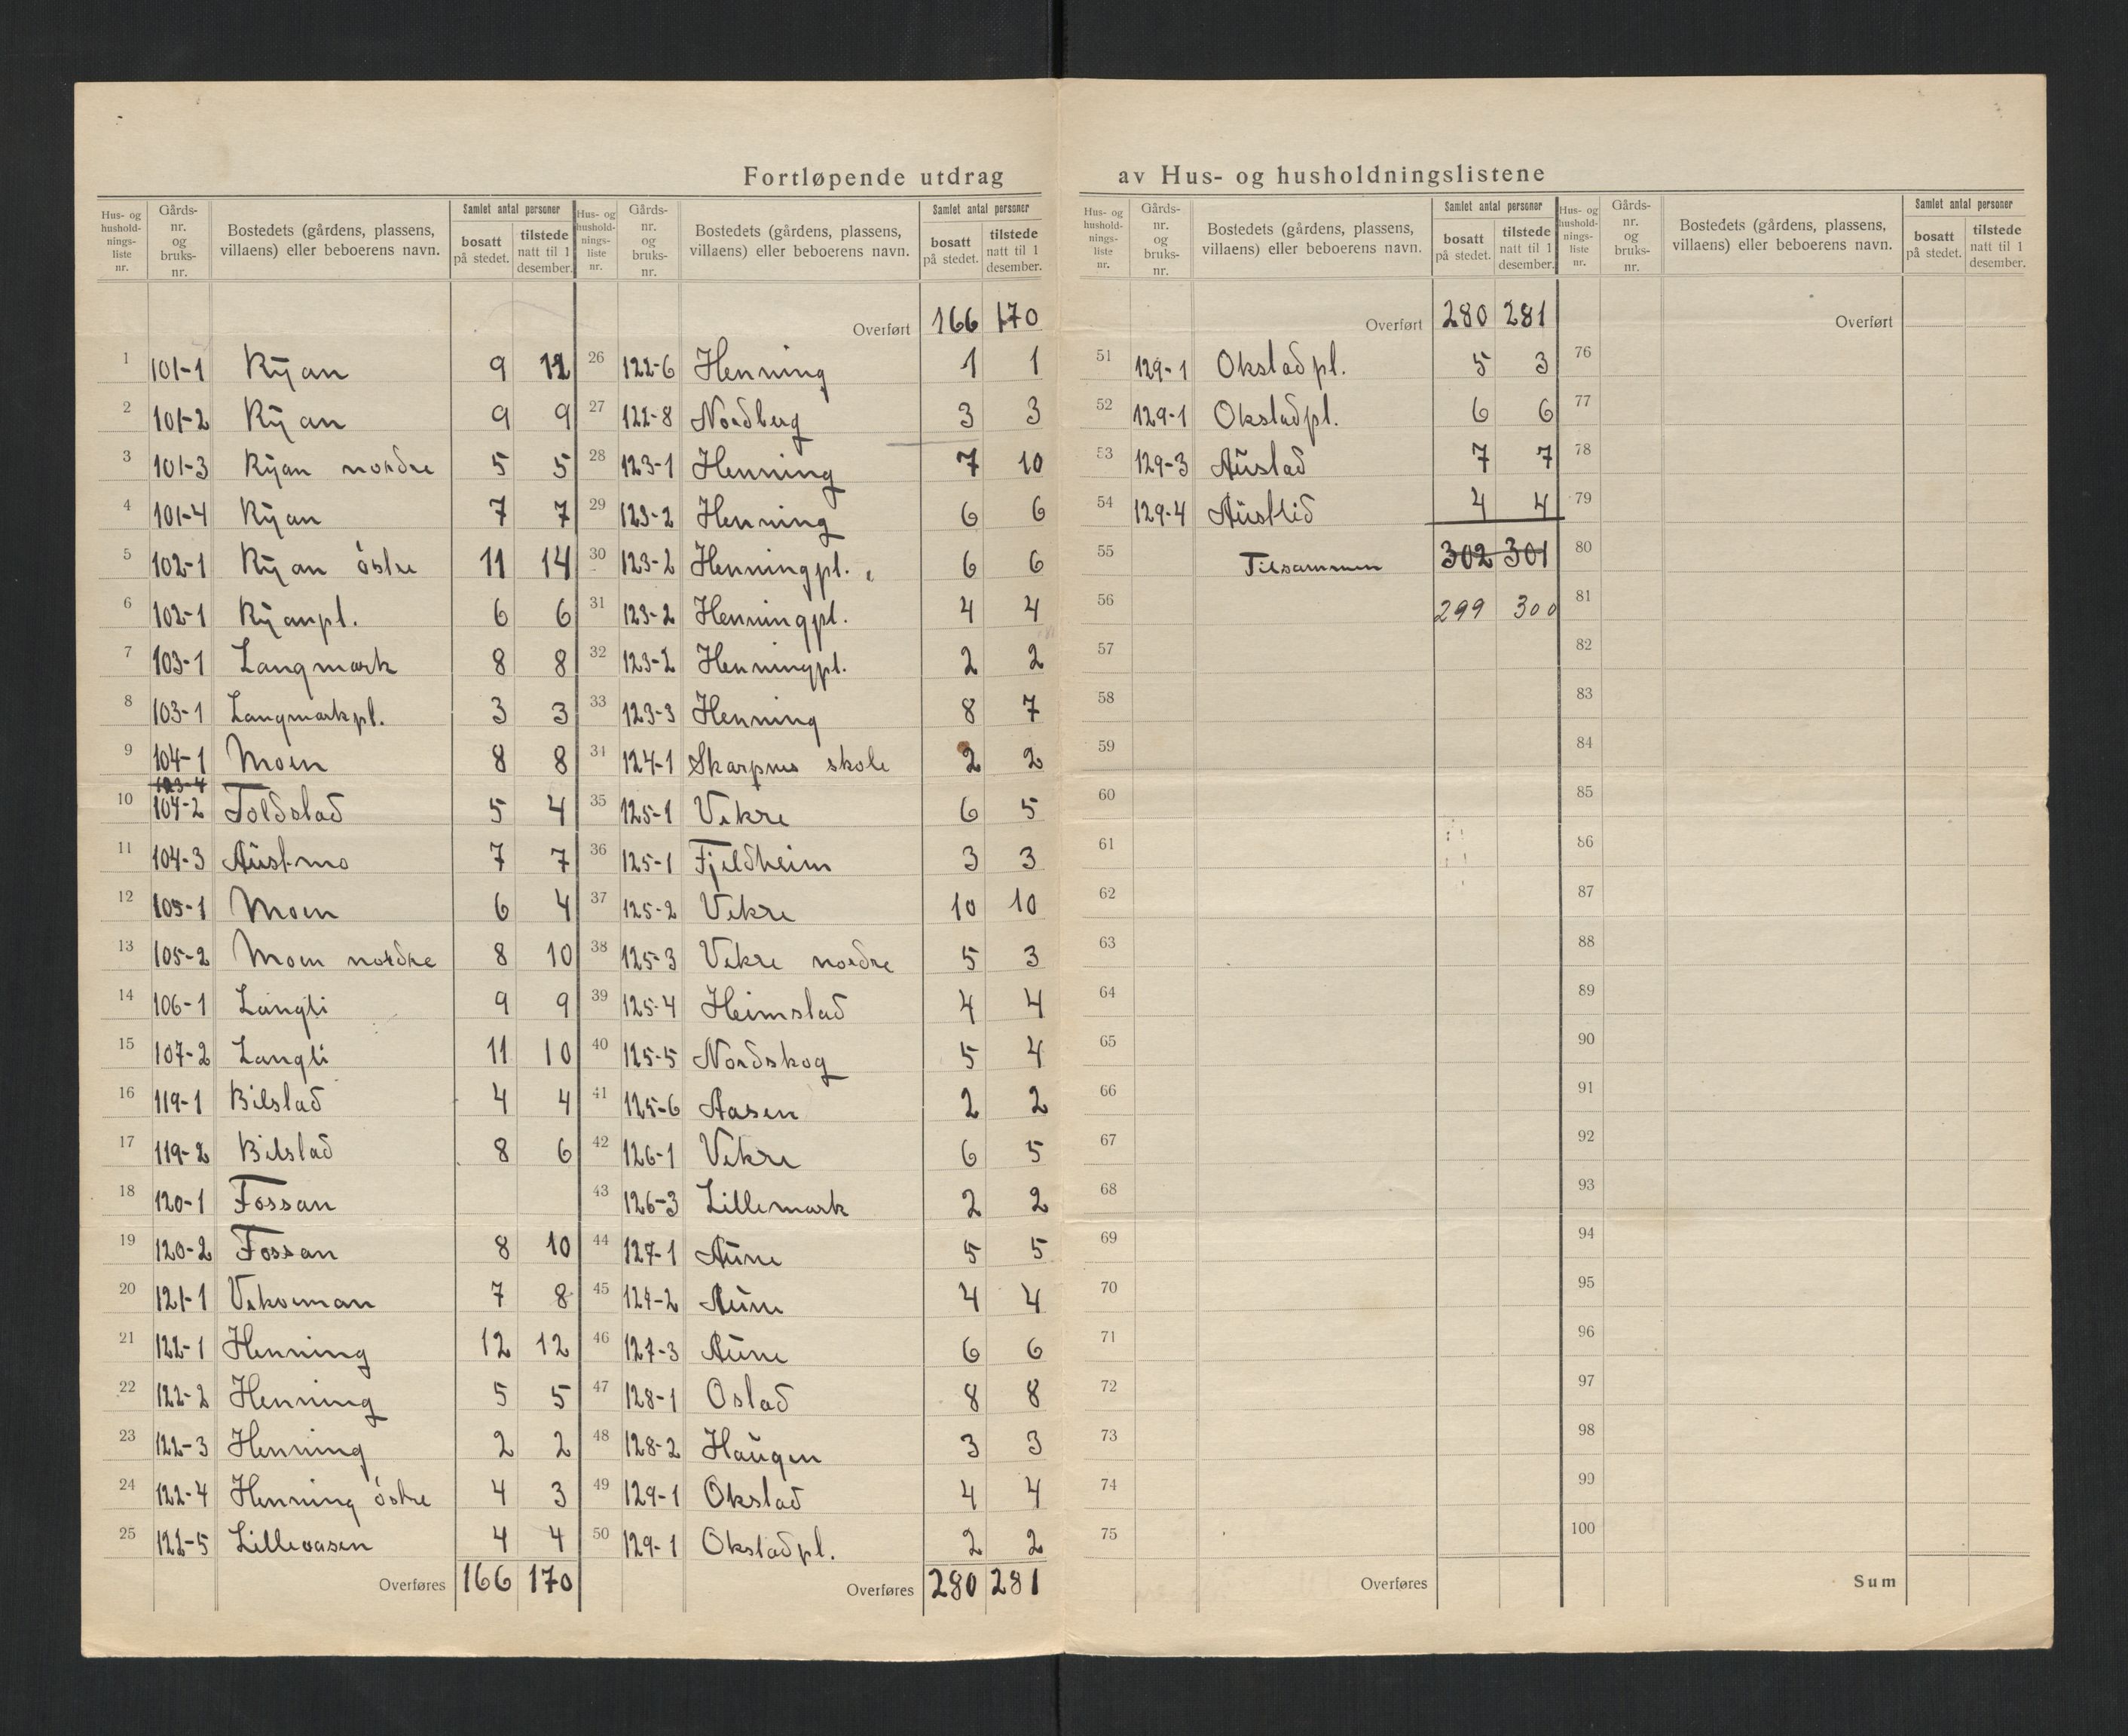 Fortløpende utdrag av Hus- og husholdningslistene
Hus- og hushold-nings-liste nr. Gårds-nr. og bruks-nr. Bostedets (gårdens, plassens, villaens) eller beboerens navn. Samlet antal personer bosatt på stedet. tilstede natt til 1 desember.
1 101-1 Ryan 9 12
2 101-2 Ryan 9 9
3 101-3 Ryan nordre 5 5
4 101-4 Ryan 7 7
5 102-1 Ryan östre 11 14
6 102-1 Ryanpl. 6 6
7 103-1 Langmark 8 8
8 103-1 Langmarkpl. 3 3
9 104-1 Moen 8 8
10 104-2 Toldstad 5 4
11 104-3 Austmo 7 7
12 105-1 Moen 6 4
13 105-2 Moen nordre 8 10
14 106-1 Langli 9 9
15 107-2 Langli 11 10
16 119-1 Bilstad 4 4
17 119-2 Bilstad 8 6
18 120-1 Fossan
19 120-2 Fossan 8 10
20 121-1 Vekreman 7 8
21 122-1 Henning 12 12
22 122-2 Henning 5 5
23 122-3 Henning 2 2
24 122-4 Henning östre 4 3
25 122-5 Lilleaasen 4 4
Overføres 166 170
Hus- og hushold-nings-liste nr. Gårds-nr. og bruks-nr. Bostedets (gårdens, plassens, villaens) eller beboerens navn. Samlet antal personer bosatt på stedet. tilstede natt til 1 desember.
Overført 166 170
26 122-6 Henning 1 1
27 122-8 Nordberg 3 3
28 123-1 Henning 7 10
29 123-2 Henning 6 6
30 123-2 Henningpl. 6 6
31 123-2 Henningpl. 4 4
32 123-2 Henningpl. 2 2
33 123-3 Henning 8 7
34 124-1 Skarpnes skole 2 2
35 125-1 Vekre 6 5
36 125-1 Fjeldheim 3 3
37 125-2 Vekre 10 10
38 125-3 Vekre nordre 5 3
39 125-4 Heimstad 4 4
40 125-5 Nordskog 5 4
41 125-6 Aasen 2 2
42 126-1 Vekre 6 5
43 126-3 Lillemark 2 2
44 127-1 Aune 5 5
45 127-2 Aune 4 4
46 127-3 Aune 6 6
47 128-1 Ostad 8 8
48 128-2 Haugen 3 3
49 129-1 Okstad 4 4
50 129-1 Okstadpl. 2 2
Overføres 280 281
Hus- og hushold-nings-liste nr. Gårds-nr. og bruks-nr. Bostedets (gårdens, plassens, villaens) eller beboerens navn. Samlet antal personer bosatt på stedet. tilstede natt til 1 desember.
Overført 280 281
51 129-1 Okstadpl. 5 3
52 129-1 Okstadpl. 6 6
53 129-3 Austad 7 7
54 129-4 Austlid 4 4
55 Tilsammen 302 301
56 299 300
57
58
59
60
61
62
63
64
65
66
67
68
69
70
71
72
73
74
75
Overføres
Hus- og hushold-nings-liste nr. Gårds-nr. og bruks-nr. Bostedets (gårdens, plassens, villaens) eller beboerens navn. Samlet antal personer bosatt på stedet. tilstede natt til 1 desember.
Overført
76
77
78
79
80
81
82
83
84
85
86
87
88
89
90
91
92
93
94
95
96
97
98
99
100
Sum